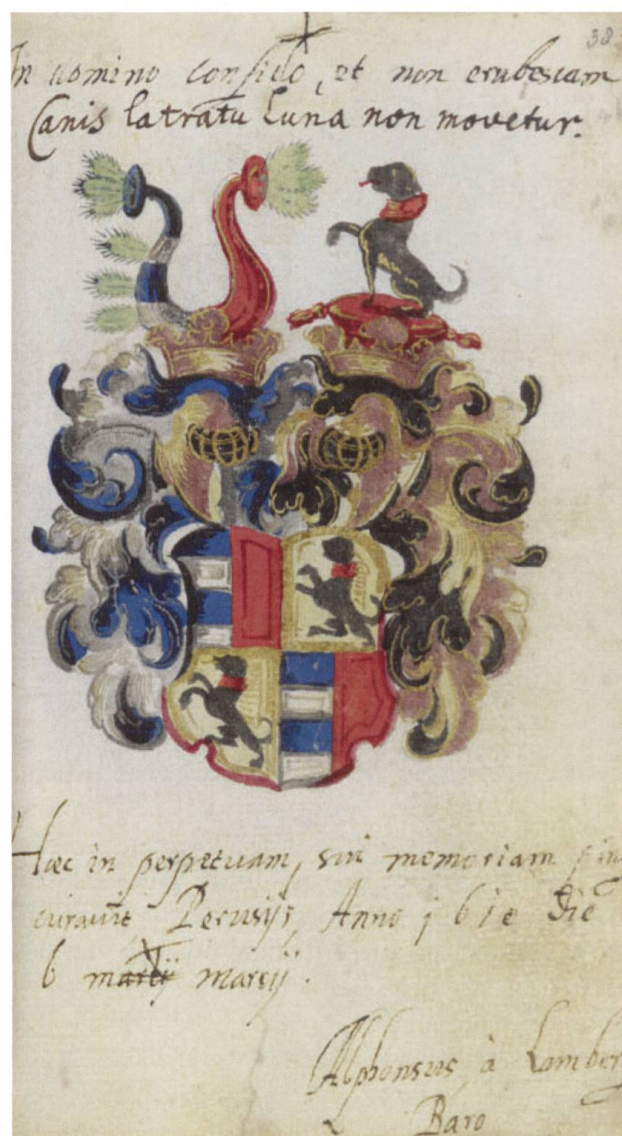 38
In domino confido, et non erubescam
Canis latratu Luna non movetur.
Haec in perpetuam, sui memoriam
curavit Perusijs, Anno 1616 die
6 martij marsij.
Alphonsus à Lamberg
Baro